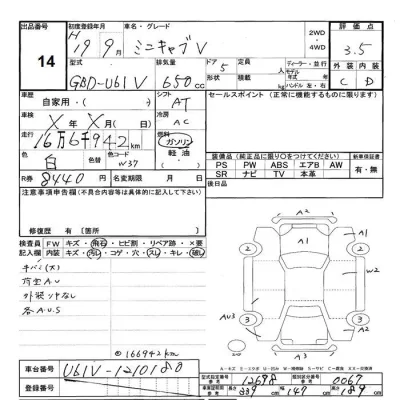 出品番号
14
初度登録年月
H 19年 9月
車名・グレード
ミニキャブV
2WD
・
4WD
評価点
3.5
型式
GBD-U61V
排気量
650cc
ドア
5
形状
定員
人
積載
kg
ディーラー・並行
モデル年式
年
ハンドル 左・右
外装
内装
C
D
車歴
自家用・( )
シフト
AT
セールスポイント (正常に機能するものに限る)
車検
X年X月( )日
冷房
AC
走行
16万6千942km
燃料
ガソリン
軽油
色
白
色コード
W37
装備品(純正品に限り○をつけてください)
新車保証書
PS PW ABS エアB AW
SR ナビ TV 本革
有・無
R券
8440円
名変期限
月 日
後日品
注意事項申告欄(不具合内容等は具体的に記入して下さい)
修復歴 有( )箇所
検査員記入欄
FW キズ・飛石・ヒビ割・リペア跡・×要
内装 キズ・汚レ・コゲ・穴・スレ・キレ・破レ
外装ツヤなし
各A.U.S
@166942km
A2
A1
A1
2
2
W2
AU3
3
3
A3
車台番号
U61V-1210188
登録番号
型式指定番号
12698
類別区分番号
0067
長さ
339
cm
幅
147
cm
高さ
189
cm